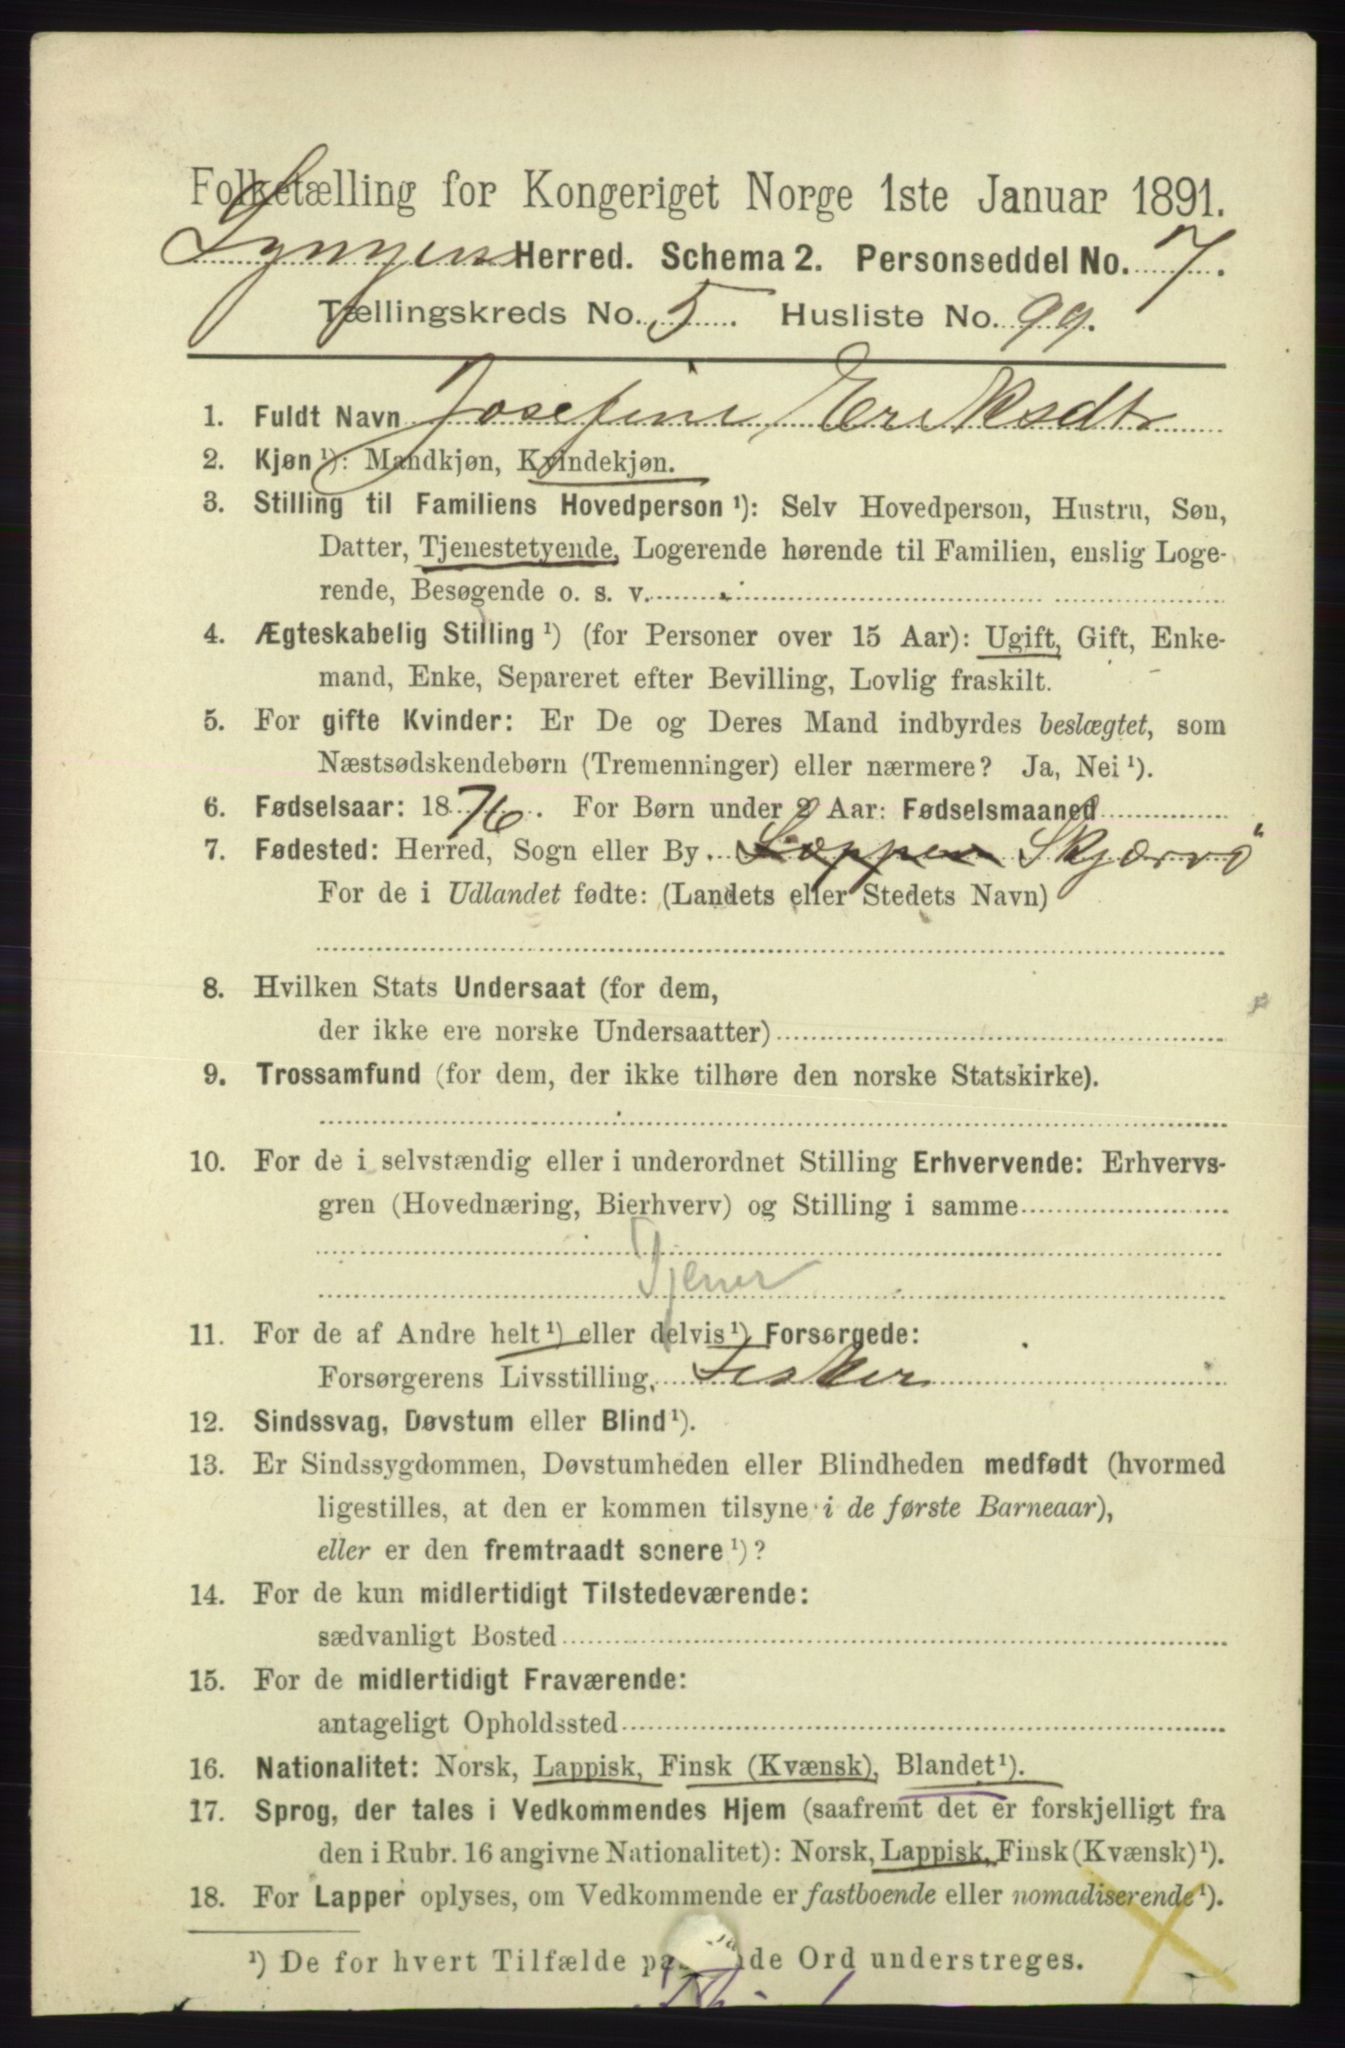 Folketælling for Kongeriget Norge 1ste Januar 1891.
Lyngen Herred. Schema 2. Personseddel No. 7.
Tællingskreds No. 5. Husliste No. 99.
1. Fuldt Navn Josefine Eriksdtr
2. Kjøn¹): Mandkjøn, Kvindekjøn.
3. Stilling til Familiens Hovedperson¹): Selv Hovedperson, Hustru, Søn,
Datter, Tjenestetyende, Logerende hørende til Familien, enslig Loge-
rende, Besøgende o. s. v.
4. Ægteskabelig Stilling¹) (for Personer over 15 Aar): Ugift, Gift, Enke-
mand, Enke, Separeret efter Bevilling, Lovlig fraskilt.
5. For gifte Kvinder: Er De og Deres Mand indbyrdes beslægtet, som
Næstsødskendebørn (Tremenninger) eller nærmere? Ja, Nei¹).
6. Fødselsaar: 1876. For Børn under 2 Aar: Fødselsmaaned
7. Fødested: Herred, Sogn eller By. Loppen Skjærvö
For de i Udlandet fødte: (Landets eller Stedets Navn)
8. Hvilken Stats Undersaat (for dem,
der ikke ere norske Undersaatter)
9. Trossamfund (for dem, der ikke tilhøre den norske Statskirke).
10. For de i selvstændig eller i underordnet Stilling Erhvervende: Erhvervs-
gren (Hovednæring, Bierhverv) og Stilling i samme
Tjener
11. For de af Andre helt¹) eller delvis¹) Forsørgede:
Forsørgerens Livsstilling, Fisker
12. Sindssvag, Døvstum eller Blind¹).
13. Er Sindssygdommen, Døvstumheden eller Blindheden medfødt (hvormed
ligestilles, at den er kommen tilsyne i de første Barneaar),
eller er den fremtraadt senere¹)?
14. For de kun midlertidigt Tilstedeværende:
sædvanligt Bosted
15. For de midlertidigt Fraværende:
antageligt Opholdssted
16. Nationalitet: Norsk, Lappisk, Finsk (Kvænsk), Blandet¹).
17. Sprog, der tales i Vedkommendes Hjem (saafremt det er forskjelligt fra
den i Rubr. 16 angivne Nationalitet): Norsk, Lappisk, Finsk (Kvænsk)¹).
18. For Lapper oplyses, om Vedkommende er fastboende eller nomadiserende¹).
¹) De for hvert Tilfælde pa nde Ord understreges.